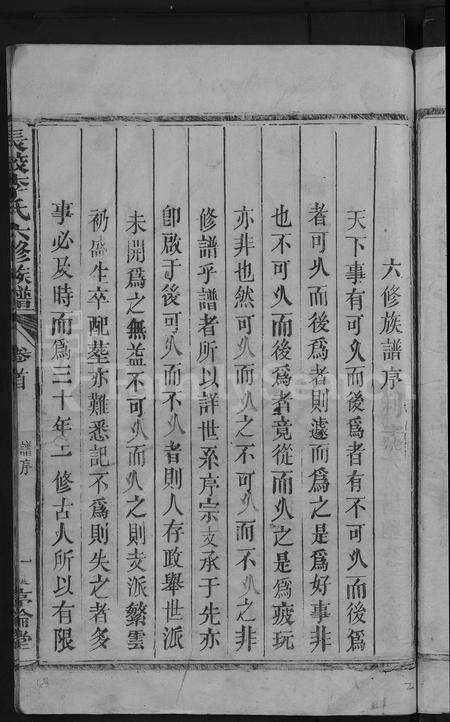 六修族譜序
天下事有可久而後爲者有不可久而後爲
者可久而後爲者則遽而爲之是爲好事非
也不可久而後爲者竟從而久之是爲疲玩
亦非也然可久而久之不可久而不久之非
修譜乎譜者所以詳世系序宗支承于先亦
卽啟于後可久而不久者則人存政舉世派
未開爲之無益不可久而久之則支派繁雲
礽盛生卒配塟亦難悉記不爲則失之者多
事必及時而爲三十年一修古人所以有限
長沙李氏六修族譜
卷首
譜序
一
敦倫堂